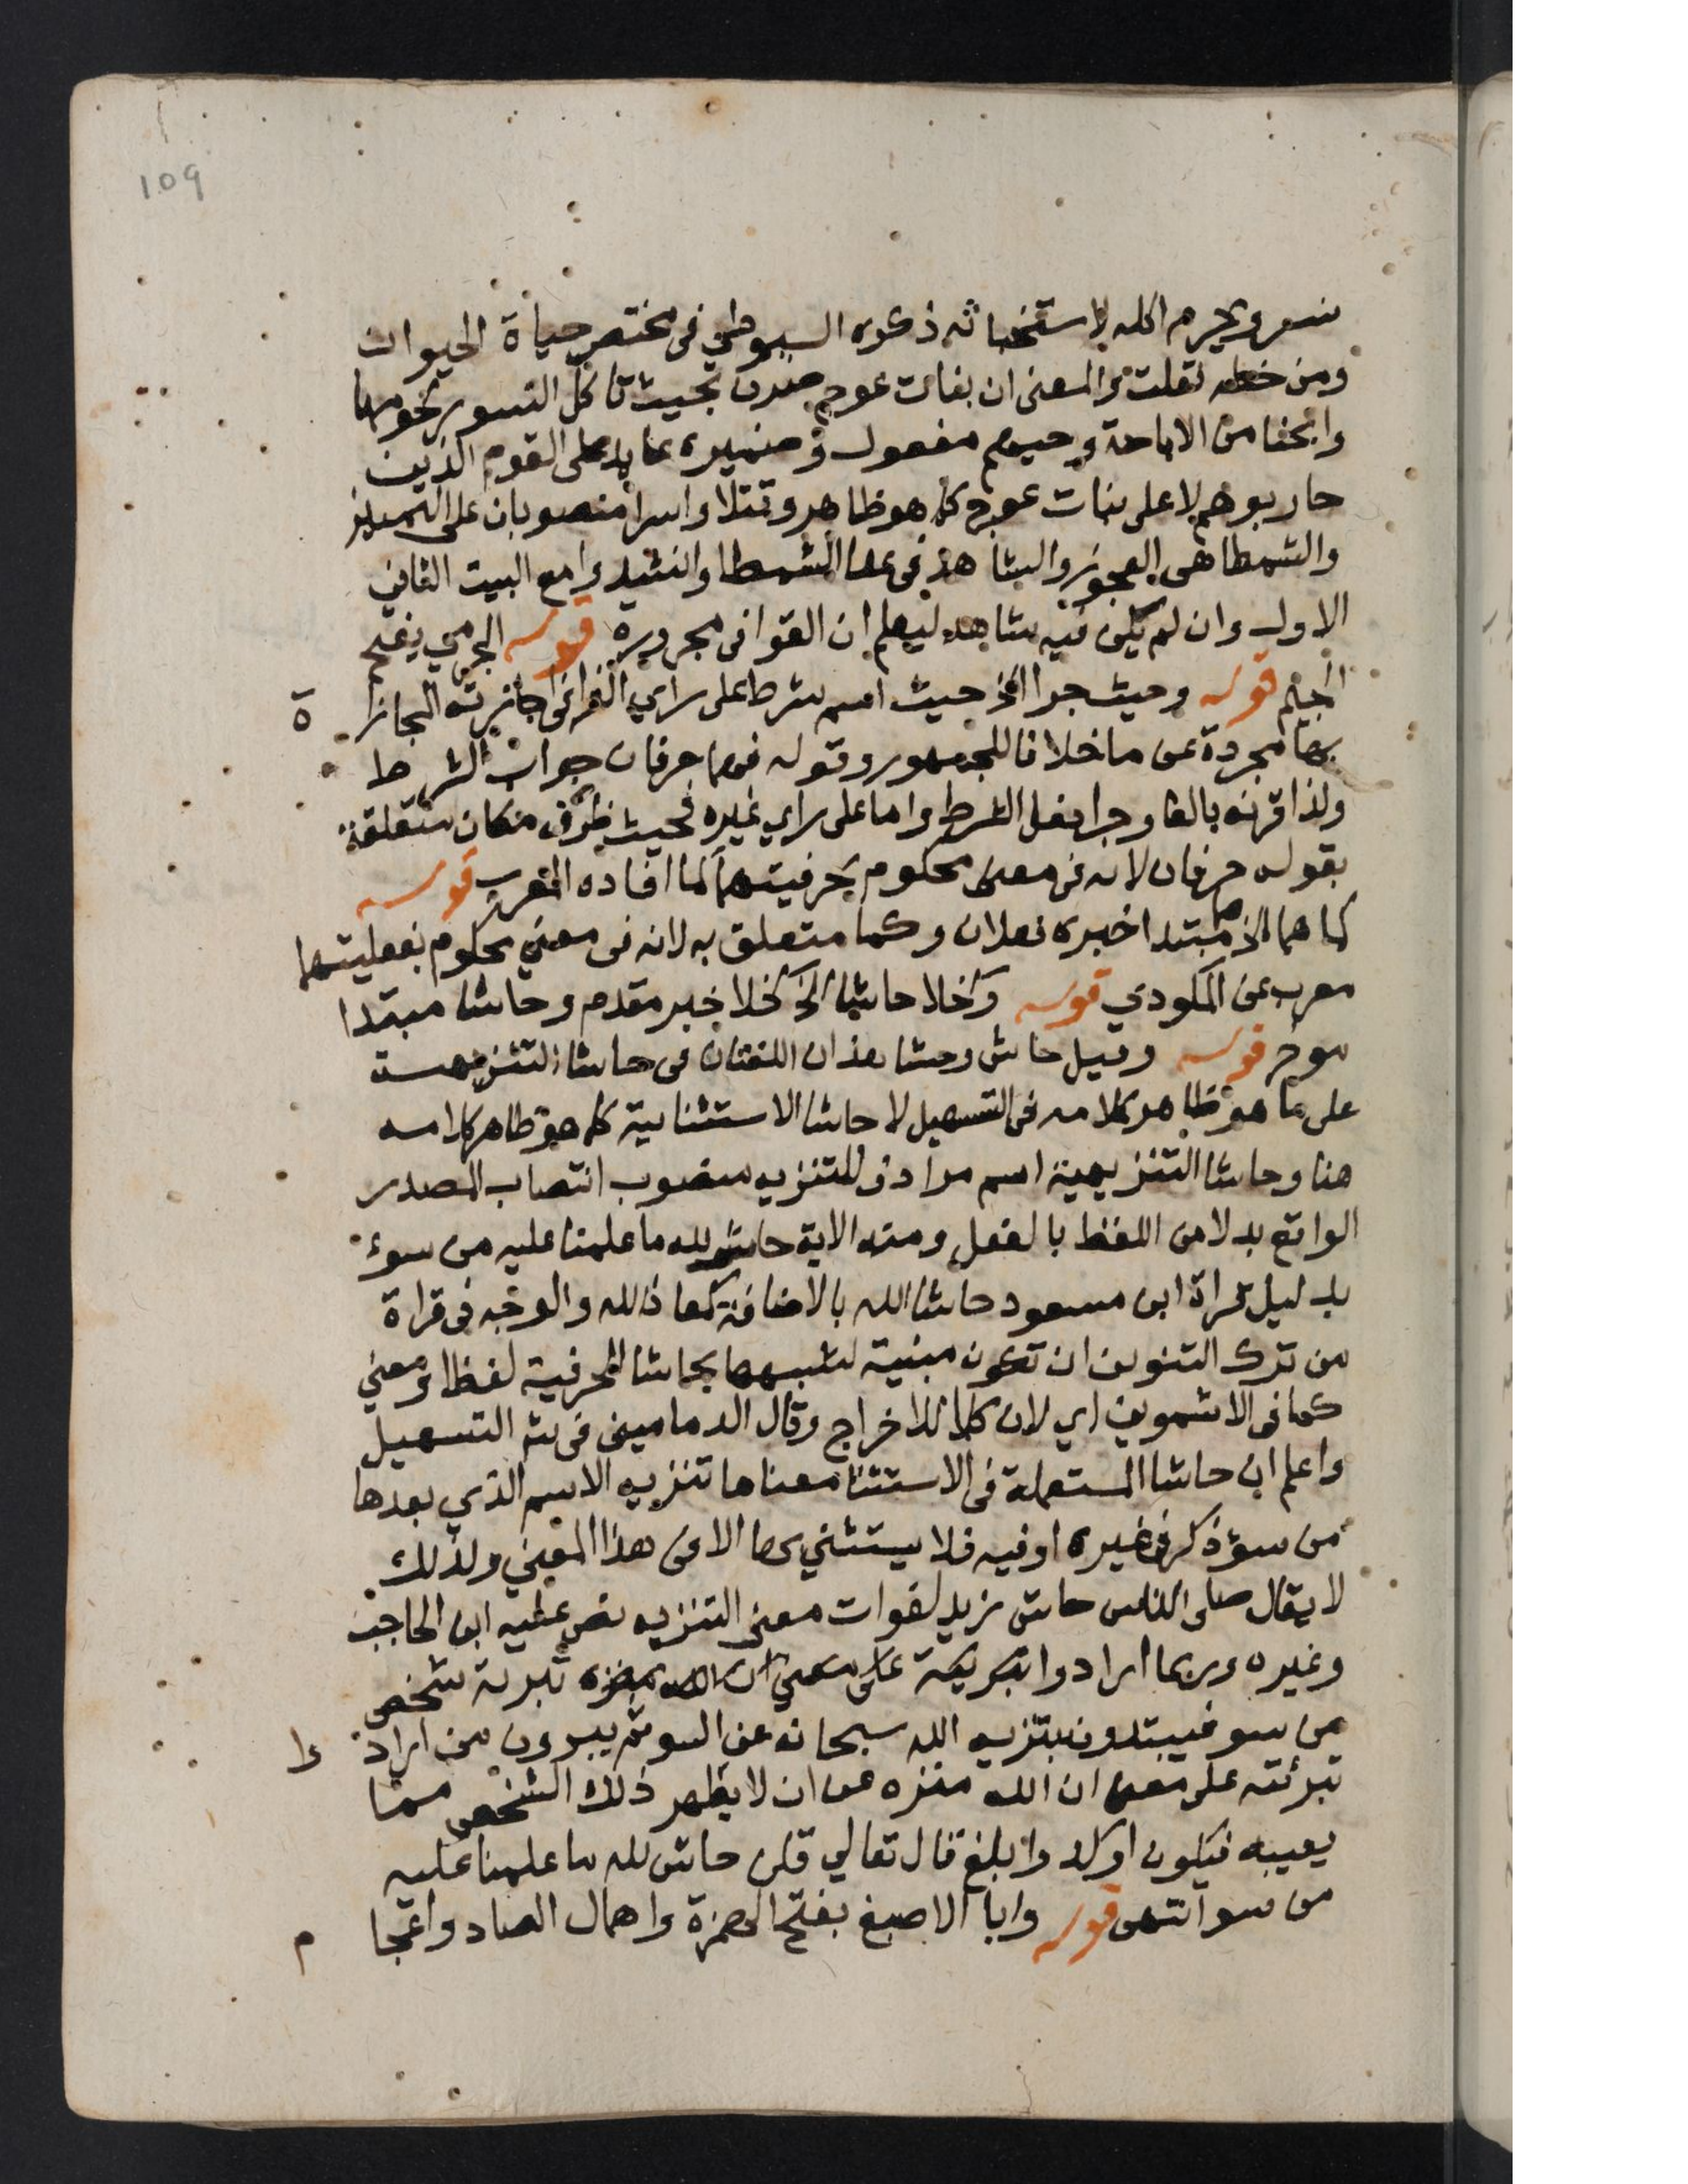 109
نسر ويحرم اكله لاستخباثه ذكره السيوطي في مختصر حياة الحيوان
ومن خطه نقلت والمعنى ان بنات عوج صرن بحيث تاكل النسور لحومها
وابحنا من الاباحة وحيهم مفعول وضميره عايد على القوم الذين
حاربوهم لا على بنات عوج كما هو ظاهر وقتلا واسرا منصوبان على التمييز
والشمطا هى العجوز والشاهد في عدا الشمطا وانشدوا مع البيت الثاني
الاول وان لم يكن فيه شاهد ليعلم ان القوافى مجرورة قوله الجرمي بفتح
الجيم قوله وحيث جرا الخ حيث اسم شرط على راي الفرا في اجازته المجازا ة
بها مجردة عن ما خلافا للجمهور وقوله فهما حرفان جواب الشرط
ولذا قرنه بالفا وجرا فعل الشرط واما على راي غيره فحيث ظرف مكان متعلقة
بقوله حرفان لانه فى معنى محكوم بحرفيتهما كما افاده المعرب قوله
كما هما الخ هما مبتدا خبره فعلان وكما متعلق به لانه فى معني محكوم بفعليتهما
معرب عن المكودي قوله وكخلا حاشا الخ كخلا خبر مقدم وحاشا مبتدا
موخر قوله وقيل حاش وحشا هذان اللغتان فى حاشا التنزيهية
على ما هو ظاهر كلامه فى التسهيل لا حاشا الاستثنايية كما هو ظاهر كلامه
هنا وحاشا التنزيهية اسم مرادف للتنزيه منصوب انتصاب المصدر
الواقع بدلا من اللفظ بالفعل ومنه الاية حاش لله ما علمنا عليه من سوء
بدليل قراة ابن مسعود حاشا الله بالاضافة كمعاذ الله والوجه فى قراة
من ترك التنوين ان تكون مبنية لشبهها بحاشا الحرفية لفظا ومعني
كما فى الاشموني اي لان كلا للاخراج وقال الدمامينى فى شر التسهيل
واعلم ان حاشا المستعملة فى الاستثنا معناها تنزيه الاسم الذي بعدها
من سوء ذكر فى غيره او فيه فلا يستثني بها الا فى هذا المعني ولذلك
لا يقال صلى الناس حاش زيد لفوات معنى التنزيه نص عليه ابن الحاجب
وغيره وربما ارادوا تبرية شخص
من سو فيبتدون بتنزيه الله سبحانه عن السو ثم يبرون من اراد وا
تبرئته على معنى ان الله منزه عن ان لا يظهر ذلك الشخص مما
يعيبه فيكون اوكد وابلغ قال تعالي قلن حاش لله ما علمنا عليه
من سو انتهى قوله وابا الاصبغ بفتح الهمزة واهمال الصاد واعجا م